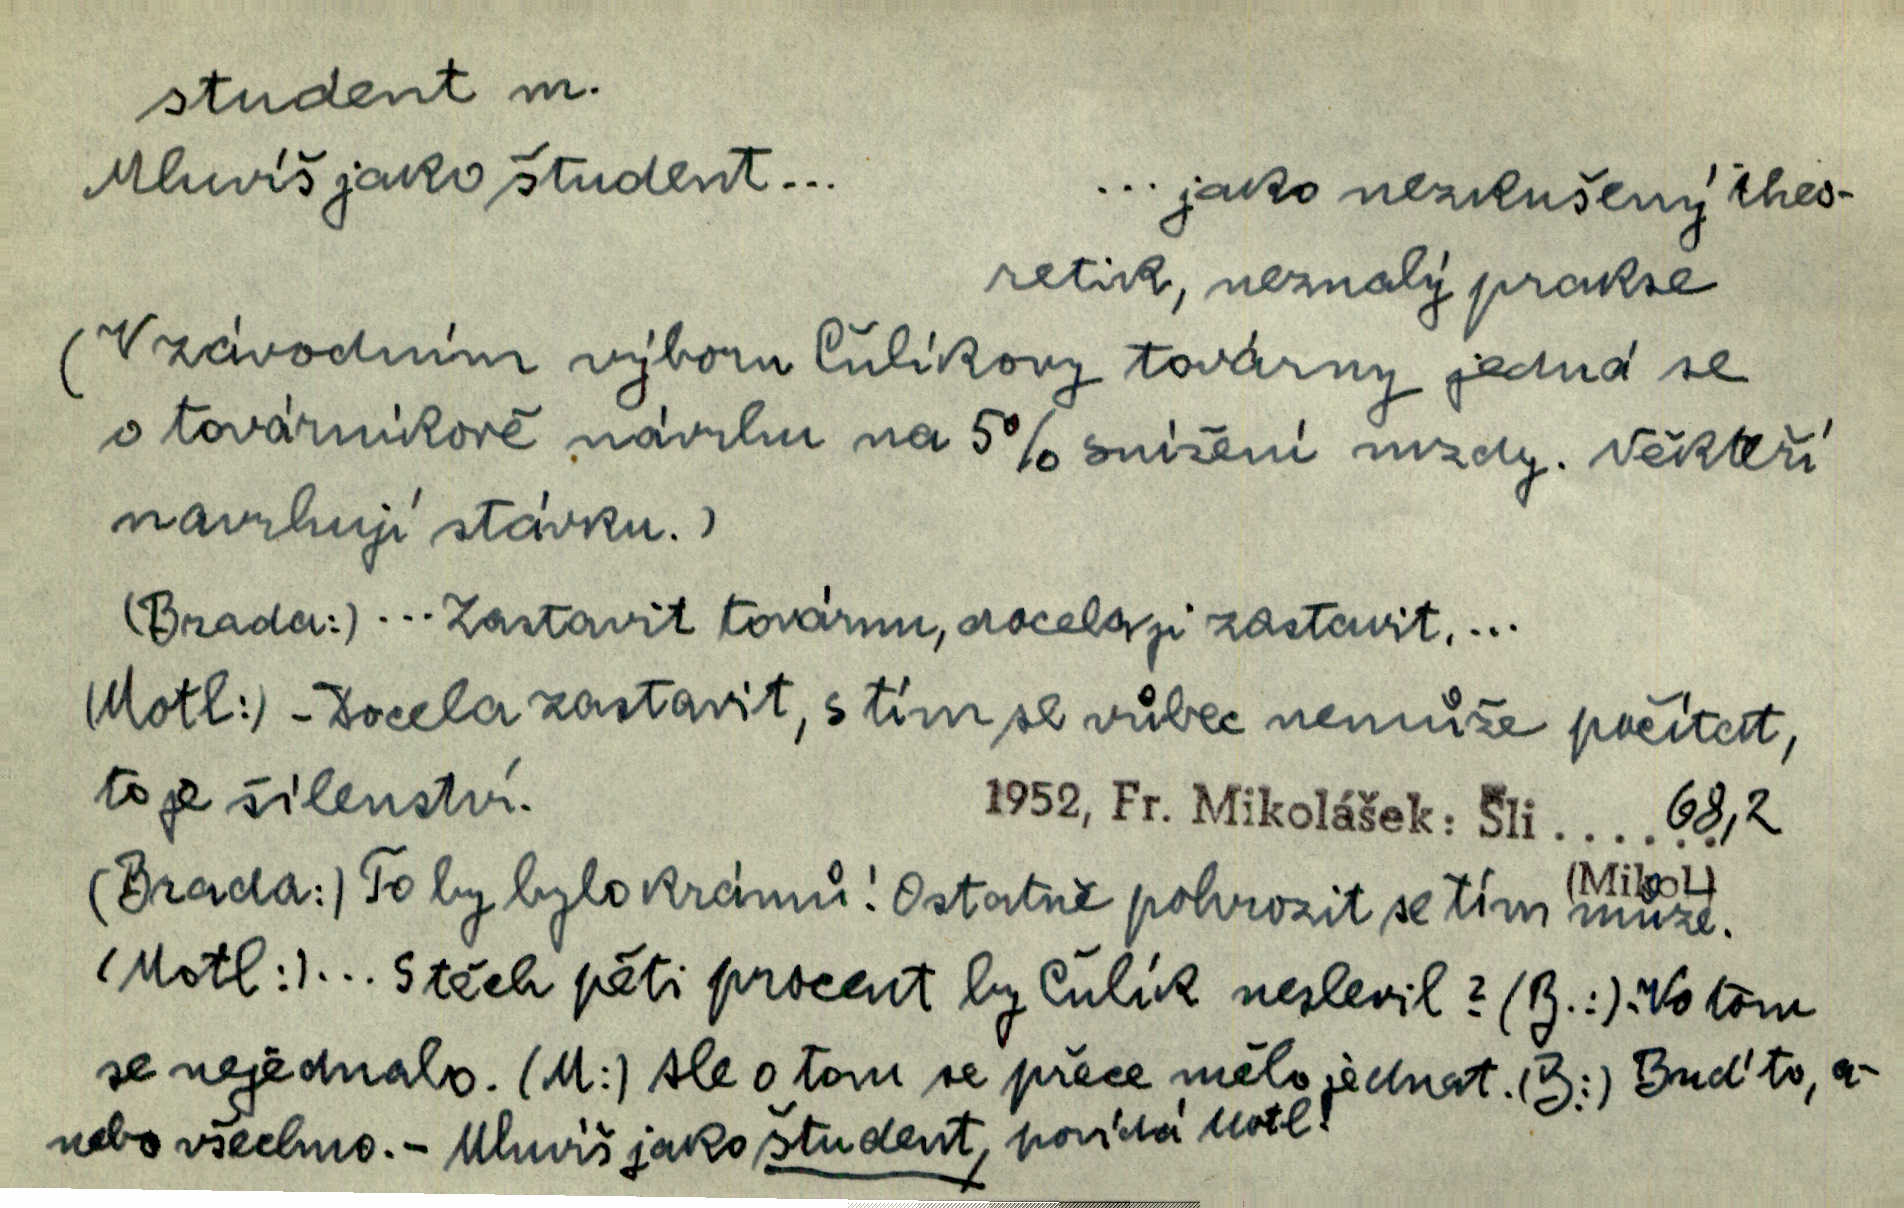 student m.
Mluvíš jako študent... ... jako nezkušený theo-
retik, neznalý prakse
(V závodním výboru Čulíkovy továrny jedná se
o továrníkově návrhu na 5% snížení mzdy. Někteří
navrhují stávku.)
(Brada:) ... Zastavit továrnu, docela ji zastavit, ...
(Motl:) - Docela zastavit, s tím se vůbec nemůže počítat,
to je šílenství.
1952, Fr. Mikolášek: Šli ...... 68,2
(Mikol)
(Brada:) To by bylo krámů! Ostatně pohrozit se tím může.
(Motl:) ... S těch pěti procent by Čulík neslevil? (B.:) - Vo tom
se nejednalo. (M:) Ale o tom se přece mělo jednat. (B:) Buď to, a-
nebo všechno. - Mluvíš jako študent, povídá Motl!